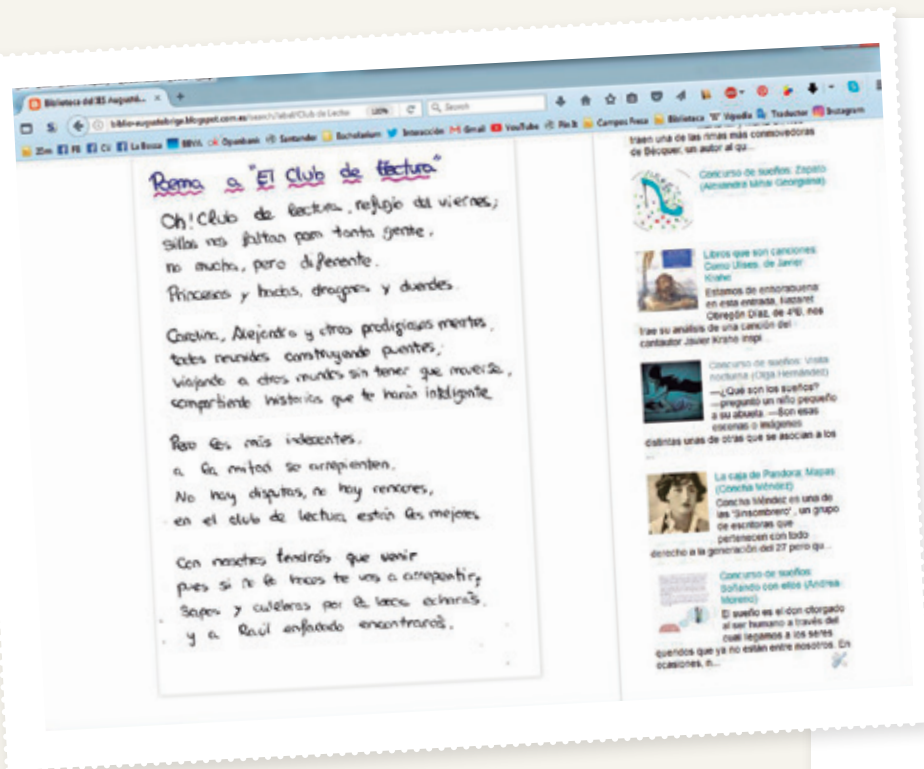 Biblioteca del IES August...
biblio-augustobriga.blogspot.com.es/search/label/Club de Lectura
120%
Search
20m
FB
CU
La Bossa
BBVA
Openbank
Santander
Bachelorium
Interacción
Gmail
YouTube
Campos
Biblioteca
Vipedia
Traductor
Instagram
Poema a "El Club de lectura"
Oh! Club de lectura, refugio del viernes;
sillas nos faltan para tanta gente,
no mucha, pero diferente.
Princesas y hadas, dragones y duendes.
Carolina, Alejandro y otras prodigiosas mentes,
todos reunidos construyendo puentes;
viajando a otros mundos sin tener que moverse,
compartiendo historias que te harán inteligente.
Pero los más indecentes,
a la mitad se arrepienten.
No hay disputas, no hay rencores,
en el club de lectura están los mejores.
Con nosotros tendrás que venir
pues si no lo haces te vas a arrepentir;
Sapos y culebras por la boca echarás,
y a Raúl enfadado encontrarás.
traen una de las rimas más conmovedoras
de Bécquer, un autor al qu...
Concurso de sueños: Zapato
(Alexandra Mihai Georgiana)
Libros que son canciones:
Como Ulises, de Javier
Krahe
Estamos de enhorabuena:
en esta entrada, Nazaret
Obregón Díaz, de 4ºB, nos
trae su análisis de una canción del
cantautor Javier Krahe inspi...
Concurso de sueños: Visita
nocturna (Olga Hernández)
—¿Qué son los sueños?
—preguntó un niño pequeño
a su abuela. —Son esas
escenas o imágenes
distintas unas de otras que se asocian a los
...
La caja de Pandora: Mapas
(Concha Méndez)
Concha Méndez es una de
las "Sinsombrero", un grupo
de escritoras que
pertenecen con todo
derecho a la generación del 27 pero qu...
Concurso de sueños:
Soñando con ellos (Andrea
Moreno)
El sueño es el don otorgado
al ser humano a través del
cual llegamos a los seres
queridos que ya no están entre nosotros. En
ocasiones, n...